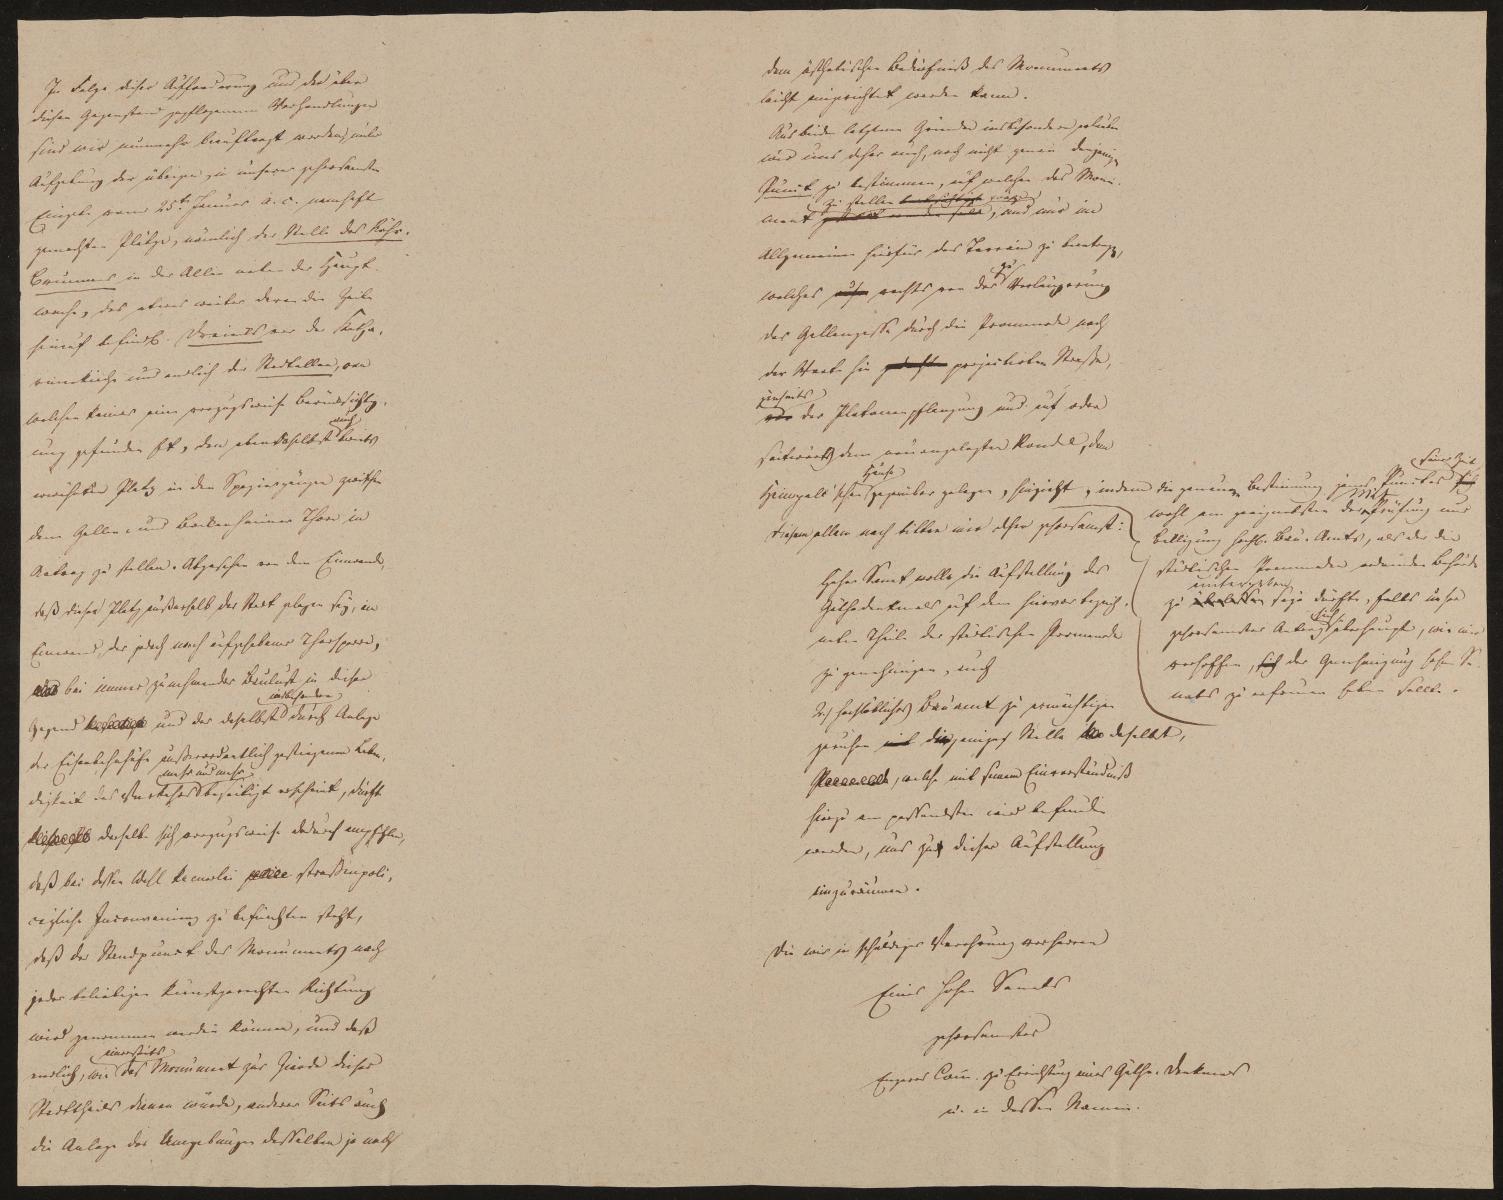 In Folge dieser Aufforderung und der über
diesen Gegenstand gepflogenen Verhandlungen
sind wir nunmehr beauftragt worden, unter
Aufhebung der übrigen in unserer gehorsamsten
Eingabe vom 25ten Januar a. c. namhaft
gemachten Plätze, nämlich der Stelle des Röhr-
brunnens in der Allee neben der Haupt-
wache, des etwas weiter davon die Zeile
hinauf befindl. Dreiecks vor der Katha-
rinenkirche und endlich der Stadtallee, von
welchen keiner eine vorzugsweise Berücksichtig-
ung gefunden hat, den ebendaselbst auch bereits
erwähnten Platz in den Spaziergängen zwischen
dem Gallen- und Bockenheimer Thore in
Antrag zu stellen. Abgesehen von dem Einwande,
daß dieser Platz außerhalb der Stadt gelegen sey, ein
Einwand, der jedoch nach aufgehobener Thorsperre,
bei immer zunehmender Baulust in dieser
Gegend und der daselbst insbesondere durch Anlage
der Eisenbahnhöfe außerordentlich gestiegenen Leben-
digkeit des Verkehrs mehr und mehr beseitigt erscheint, dürfte
derselbe sich vorzugsweise dadurch empfehlen,
daß bei dessen Wahl keinerlei straßenpoli-
zeyliche Inconvenienz zu befürchten steht,
daß der Standpunct des Monuments nach
jeder beliebigen kunstgerechten Richtung
wird genommen werden können, und daß
endlich, wie einerseits das Monument zur Zierde dieses
Stadttheiles dienen würde, anderer Seits auch
die Anlage der Umgebungen desselben je nach
dem ästhetischen Bedürfniß des Monuments
leicht eingerichtet werden kann.
Aus beiden letzteren Gründen insbesondere erlauben
wir uns daher auch, noch nicht genau denjenigen
Punct zu bestimmen, auf welchen das Monu-
ment zu stellen, und nur im
Allgemeinen hierfür das Terrain zu beantragen,
welches rechts von der zur Verlängerung
der Gallengasse durch die Promenade nach
der Stadt hin projectirten Straße,
jenseits der Platanenpflanzung und auf oder
seitwärts dem neuangelegten Rondel, dem
Heimgels'schen Hause gegenüber gelegen, hinzieht, indem die genauere Bestimmung jenes Punctes seiner Zeit
wohl am geeignetsten der Mit-Prüfung und
Billigung hochl. Bau-Amts, als der die
städtischen Promenaden ordnenden Behörde
zu untergeben seyn dürfte, falls unser
gehorsamster Antrag sich überhaupt, wie wir
verhoffen, der Genehmigung hohen Se-
nats zu erfreuen haben sollte.
Diesem allem nach bitten wir daher gehorsamst:
Hoher Senat wolle die Aufstellung des
Göthedenkmals auf dem hiervor bezeich-
neten Theile der städtischen Promenade
zu genehmigen, auch
hochlöbliches Bauamt zu ermächtigen
geruhen diejenige Stelle daselbst,
welche mit seinem Einverständniß
hiezu am passendsten wird befunden
werden, uns zu dieser Aufstellung
einzuräumen.
Die wir in schuldiger Verehrung verharren
Eines hohen Senats
gehorsamster
Engeres Com. zu Errichtung eines Göthe-Denkmals
u. in dessen Namen.